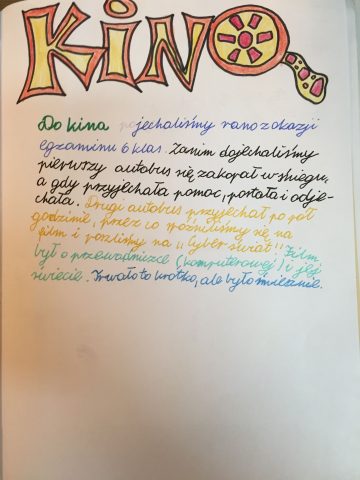 KINO
Do kina pojechaliśmy rano z okazji
egzaminu 6 klas. Zanim dojechaliśmy
pierwszy autobus się zakopał w śniegu,
a gdy przyjechała pomoc, postała i odje-
chała. Drugi autobus przyjechał po pół
godzinie, przez co spóźniliśmy się na
film i poszliśmy na "Cyber świat" Film
był o przewodniczce (komputerowej) i jej
świecie. Trwało to krótko, ale było śmiesznie.